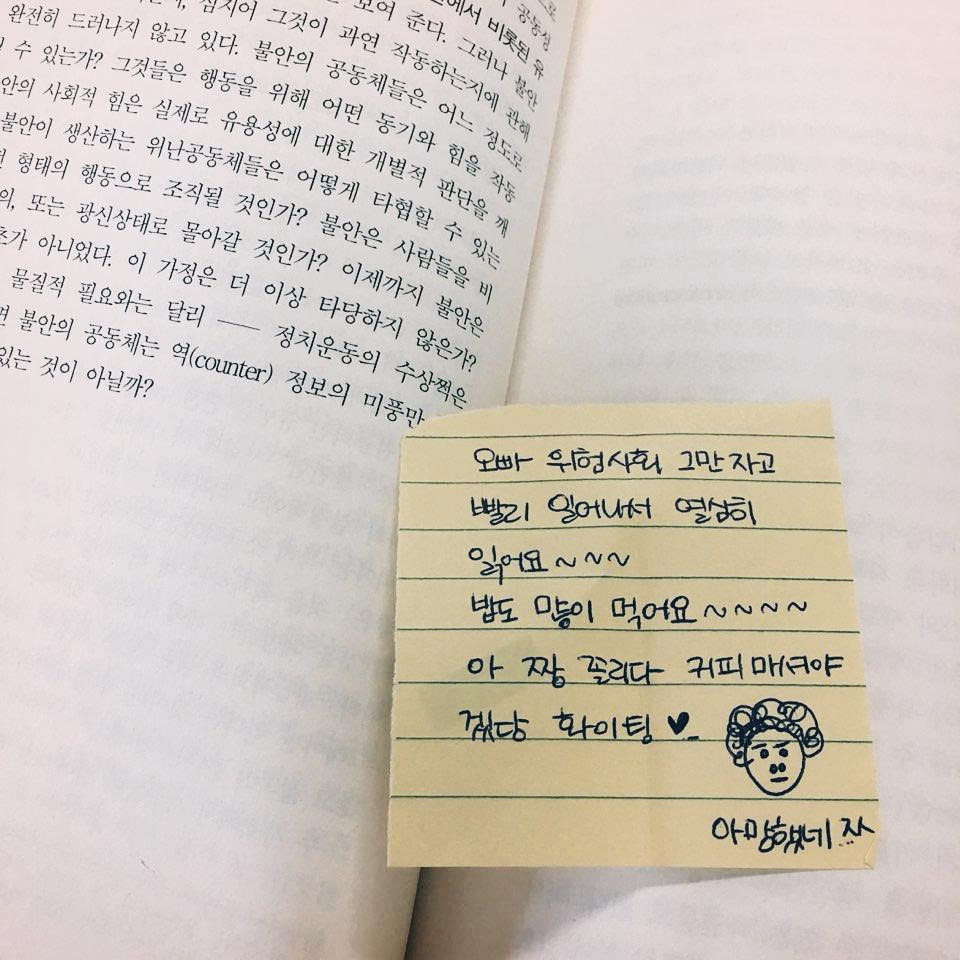 에서 비롯된 유
심지어 그것이 과연 작동하는지에 관해
완전히 드러나지 않고 있다. 불안의 공동체들은 어느 정도로
수 있는가? 그것들은 행동을 위해 어떤 동기와 힘을 작동
안의 사회적 힘은 실제로 유용성에 대한 개별적 판단을 깨
불안이 생산하는 위난공동체들은 어떻게 타협할 수 있는
형태의 행동으로 조직될 것인가? 불안은 사람들을 비
의, 또는 광신상태로 몰아갈 것인가? 이제까지 불안은
초가 아니었다. 이 가정은 더 이상 타당하지 않은가?
물질적 필요와는 달리 ── 정치운동의 수상쩍은
면 불안의 공동체는 역(counter) 정보의 미풍만
있는 것이 아닐까?
오빠 위험사회 그만 자고
빨리 일어나서 열심히
읽어요~~~
밥도 많이 먹어요~~~~
아 짱 졸리다 커피 마셔야
겠당 화이팅 ♥
아 망했네